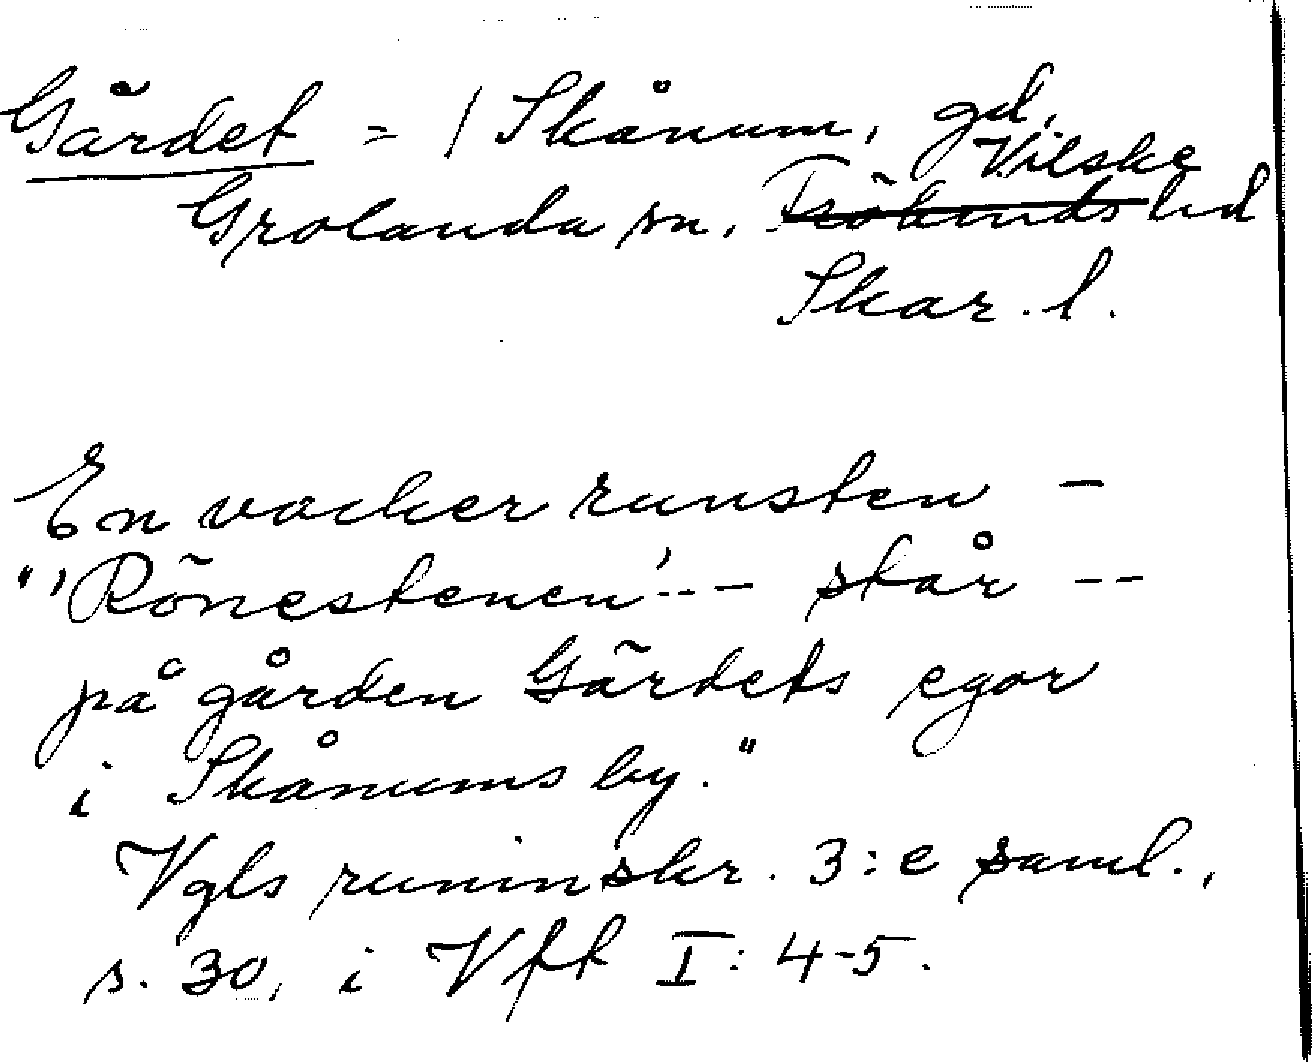 Gärdet = / Skånum, gd,
Grolanda sn, Vilske hd
Skar. l.
En vacker runsten –
"'Rönestenen'-- – står --
på gården Gärdets egor
i Skånums by."
Vgls runinskr. 3:e saml.,
s. 30, i Vft I: 4-5.